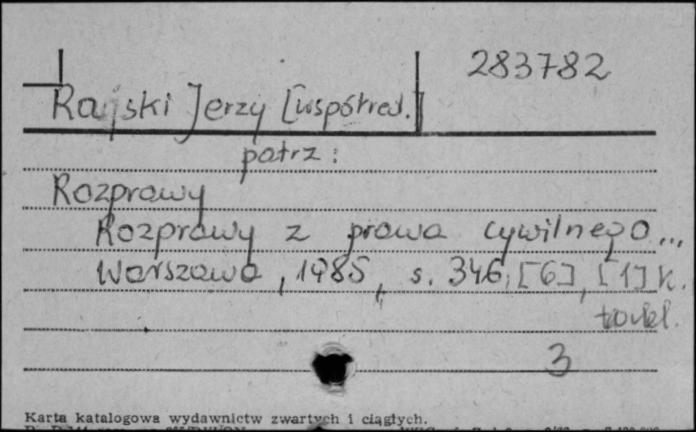 283782
Rajski Jerzy [współred.]
patrz:
Rozprawy
Rozprawy z prawa cywilnego...
Warszawa, 1985, s. 346, [6], [1] k.
tabl.
3
Karta katalogowa wydawnictw zwartych i ciągłych.